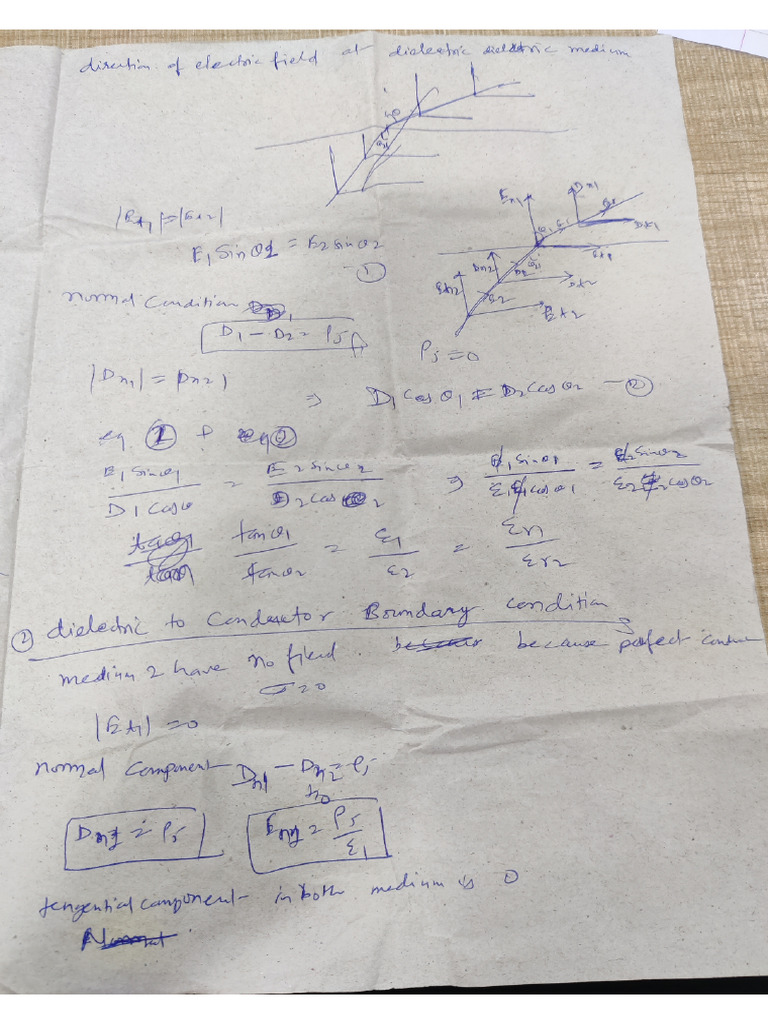 direction of electric field at dielectric dielectric medium
θ1
θ2
|Et1| = |Et2|
E1 Sinθ1 = E2 sinθ2
— ①
En1
Dn1
Dt1
Et1
Dn2
Dt2
En2
E2
Et2
normal Condition
D1 - D2 = ρs
ρs = 0
|Dn1| = |Dn2|
⇒ D1 Cosθ1 = D2 Cosθ2 — ②
eq ① & eq ②
E1 Sinθ1 / D1 Cosθ = E2 Sinθ2 / D2 Cosθ2 ⇒ E1 Sinθ1 / ε1 E1 Cosθ1 = E2 Sinθ2 / ε2 E2 Cosθ2
tanθ1 / tanθ2 = ε1 / ε2 = εr1 / εr2
② dielectric to Conductor Boundary condition
medium 2 have no field because perfect
σ=0
|Et1| = 0
normal component Dn1 - Dn2 = ρs
Dn1 = ρs
En1 = ρs / ε1
tengential component in both medium is 0